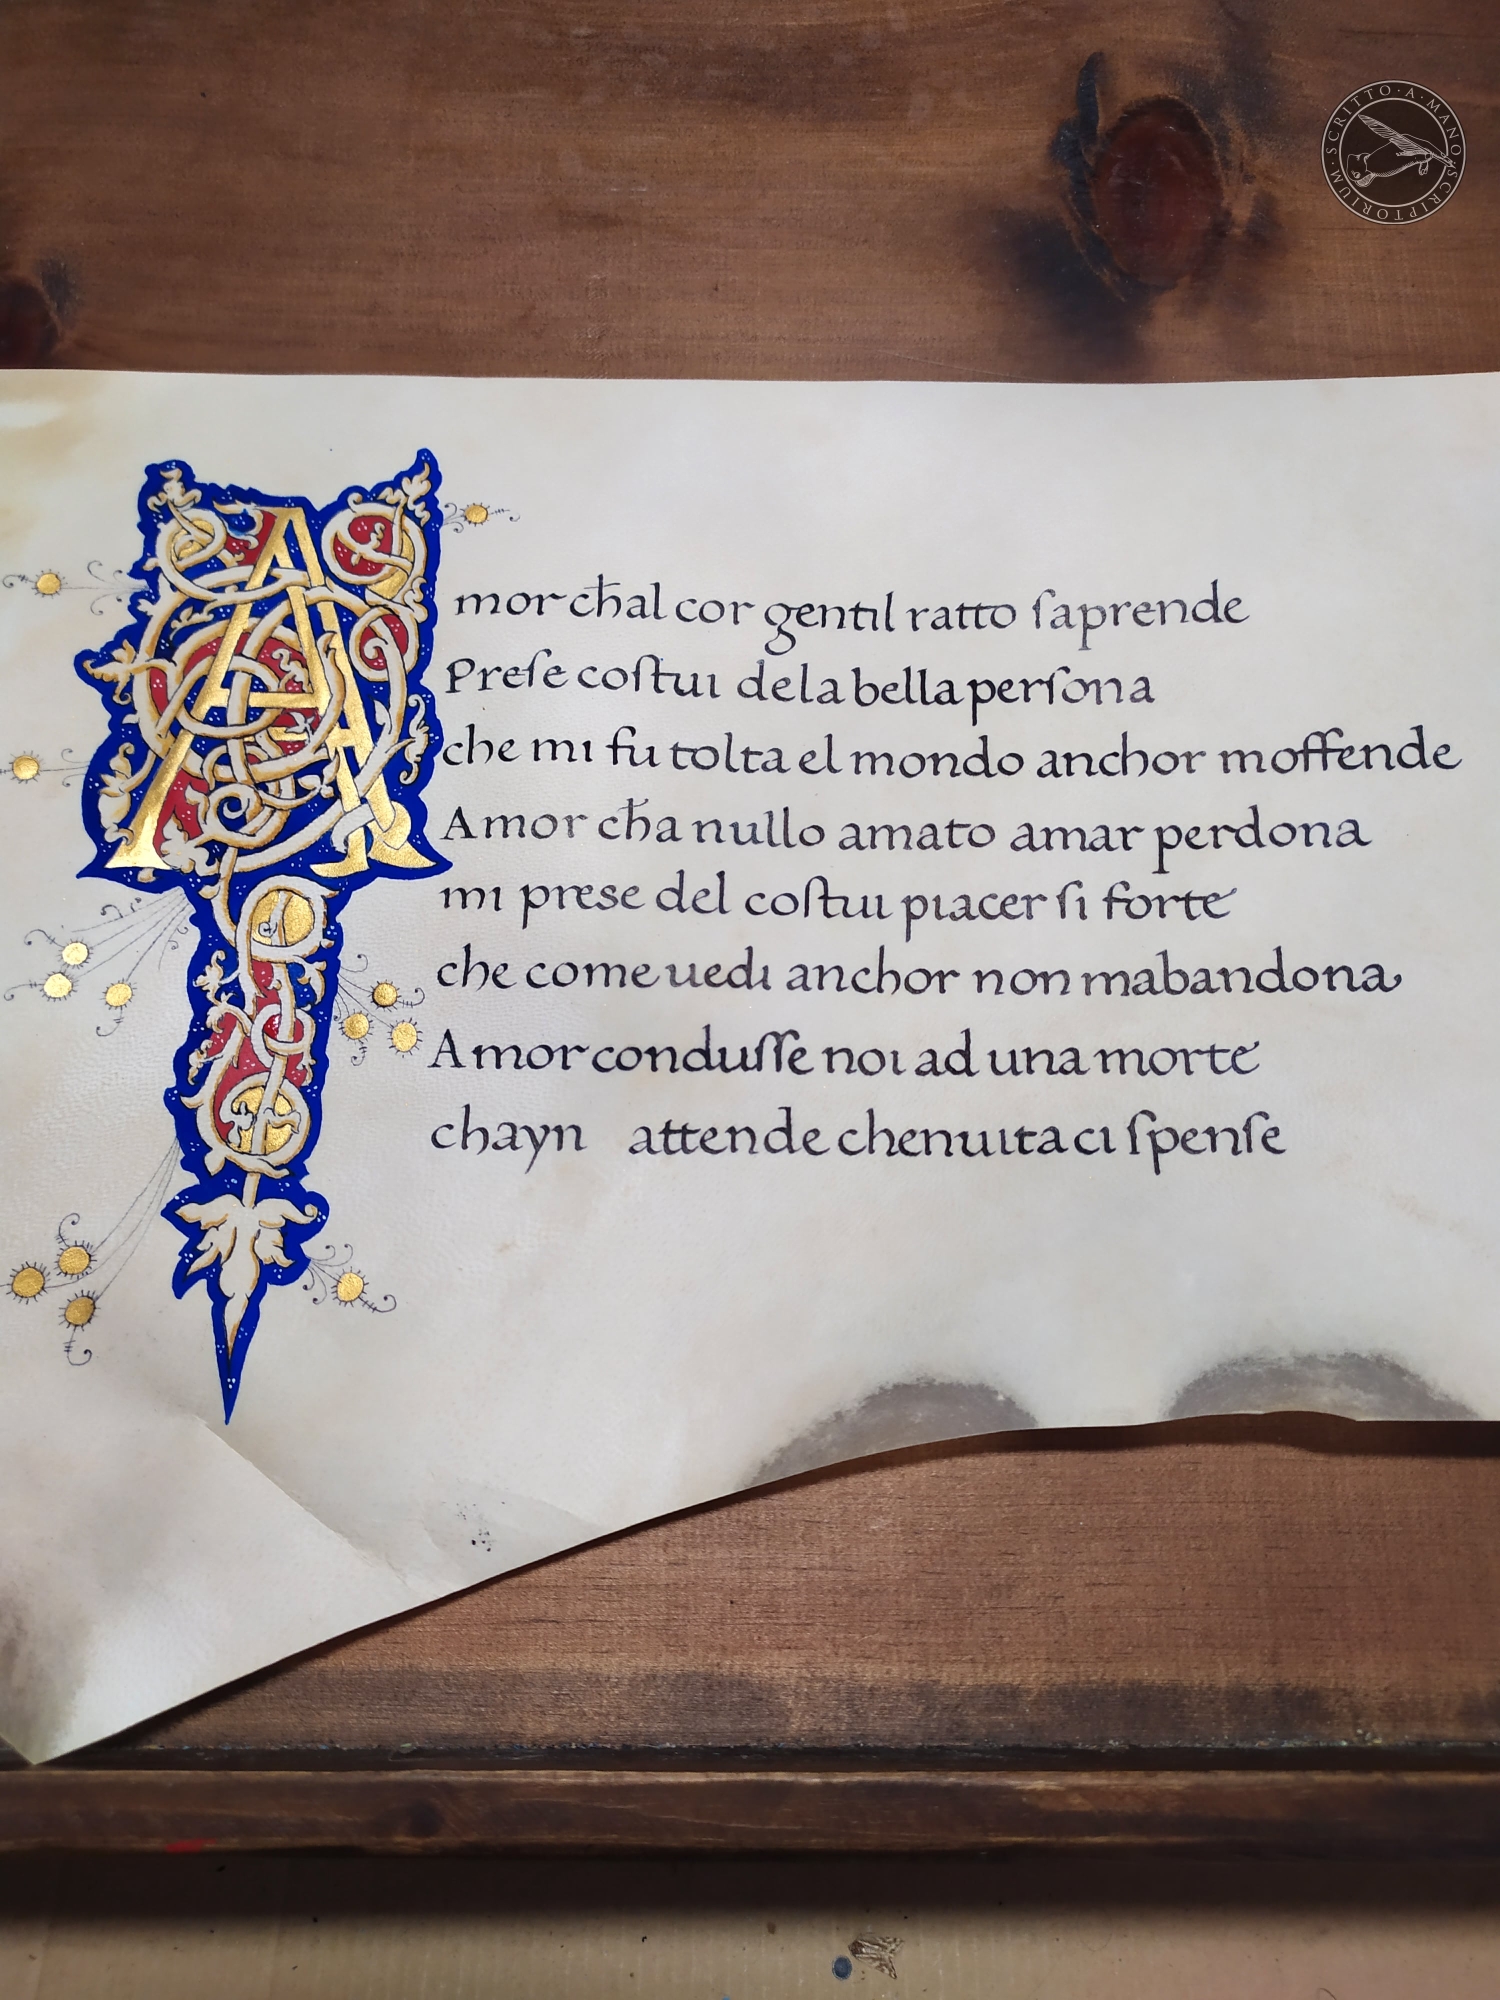 SCRITTO·A·MANO·SCRIPTORIUM·
Amor ch̄al cor gentil ratto ſaprende
Preſe coſtuı dela bella perſona
che mı fu tolta el mondo anchor moffende
Amor ch̄a nullo amato amar perdona
mı prese del coſtuı pıacer ſi forte
che come uedı anchor non mabandona
Amor conduſſe noı ad una morte
chayn attende chenuıta cı ſpenſe